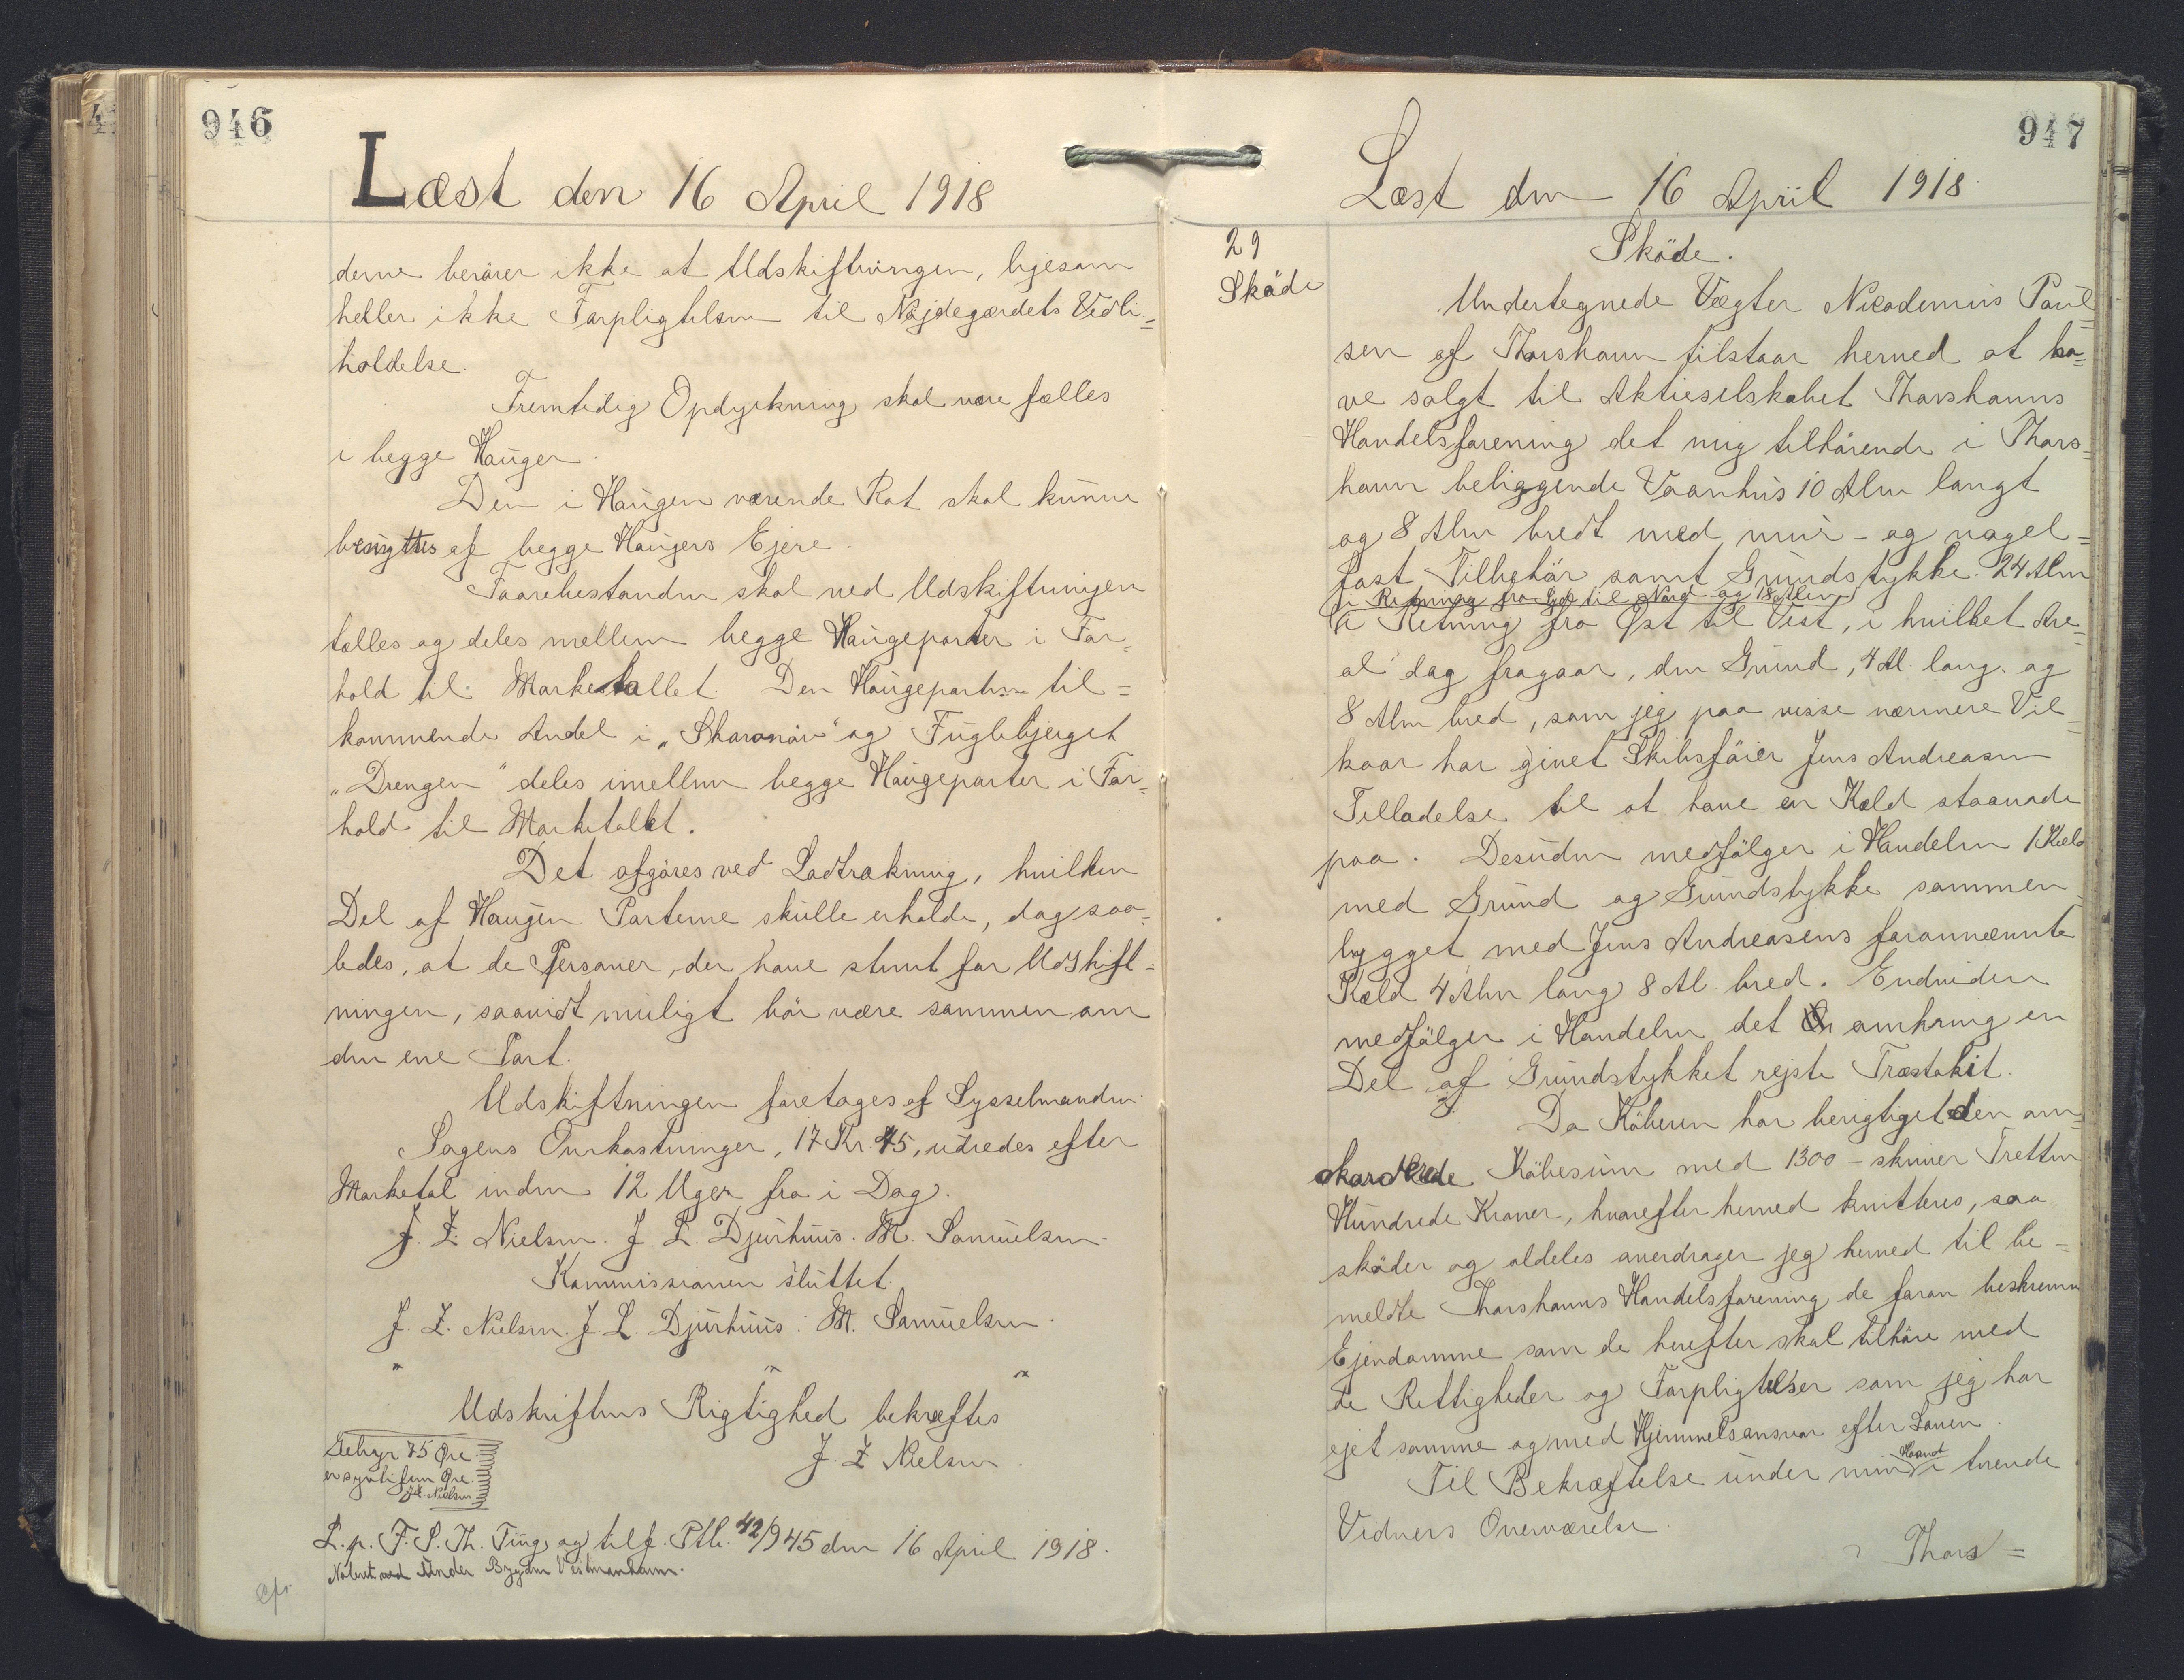 946
Læst den 16 April 1918
derne berører ikke at Udskiftningen, ligesom
heller ikke Forpligtelsen til Nöjdegærdets Vedli=
holdelse.
Fremtidig Opdyrkning skal være fælles
i begge Hauger.
Den i Haugen værende Rat skal kunne
benyttes af begge Haugers Ejere.
Faarebestanden skal ved Udskiftningen
tælles og deles mellem begge Haugeparter i For=
hold til Marketallet. Den Haugeparten til=
kommende Andel i „Skoranöv" og Fuglebjerget
„Drengen" deles imellem begge Haugeparter i For=
hold til Marketallet.
Det afgöres ved Lodtrækning, hvilken
Del af Haugen Parterne skulle erholde, dog saa=
ledes, at de Personer, der have stemt for Udskift=
ningen, saavidt muligt bör være sammen om
den ene Part.
Udskiftningen foretages af Sysselmanden.
Sagens Omkostninger, 17 Kr 45, udredes efter
Marketal inden 12 Uger fra i Dag.
J. Z. Nielsen. J. L. Djurhuus. M. Samuelsen.
Kommissionen sluttet.
J. Z. Nielsen. J. L. Djurhuus. M. Samuelsen.
" " "
Udskriftens Rigtighed bekræftes
J. Z Nielsen.
Gebyr 75 Øre
er syvtifem Øre.
J.Z. Nielsen
L. p. F. S. Th. Ting og tilf. Ptb. 42/945 den 16 April 1918.
Noteret ved Under Bygden Vestmanhavn.
947
Læst den 16 April 1918.
29
Sköde
Sköde.
Undertegnede Vægter Nicodemus Poul=
sen af Thorshavn tilstaar herved at ha=
ve solgt til Aktieselskabet Thorshavns
Handelsforening det mig tilhörende i Thors=
havn beliggende Vaanhus 10 Alen langt
og 8 Alen bredt med mur- og nagel=
fast Tilbehör samt Grundstykke 24 Alen
i Retning fra Syd til Nord og 18 Alen
i Retning fra Øst til Vest, i hvilket Are=
al dog fragaar, den Grund, 4 Al. lang og
8 Alen bred, som jeg paa visse nærmere Vil=
kaar har givet Skibsförer Jens Andreasen
Tilladelse til at have en Kæld staaende
paa. Desuden medfölger i Handelen 1 Kæld
med Grund og Grundstykke sammen=
bygget med Jens Andreasens forannævnte
Kæld 4 Alen lang 8 Al. bred. Endvidere
medfölger i Handelen det omkring en
Del af Grundstykket rejste Træstakit.
Da Köberen har berigtiget den om=
akorderede Köbesum med 1300 – skriver Tretten
Hundrede Kroner, hvorefter herved kvitteres, saa
sköder og aldeles overdrager jeg herved til be=
meldte Thorshavns Handelsforening de foran beskrevne
Ejendomme som de herefter skal tilhöre med
de Rettigheder og Forpligtelser som jeg har
ejet samme og med Hjemmelsansvar efter Loven.
Til Bekræftelse under min Haand i tvende
Vidners Overværelse.
Thors=